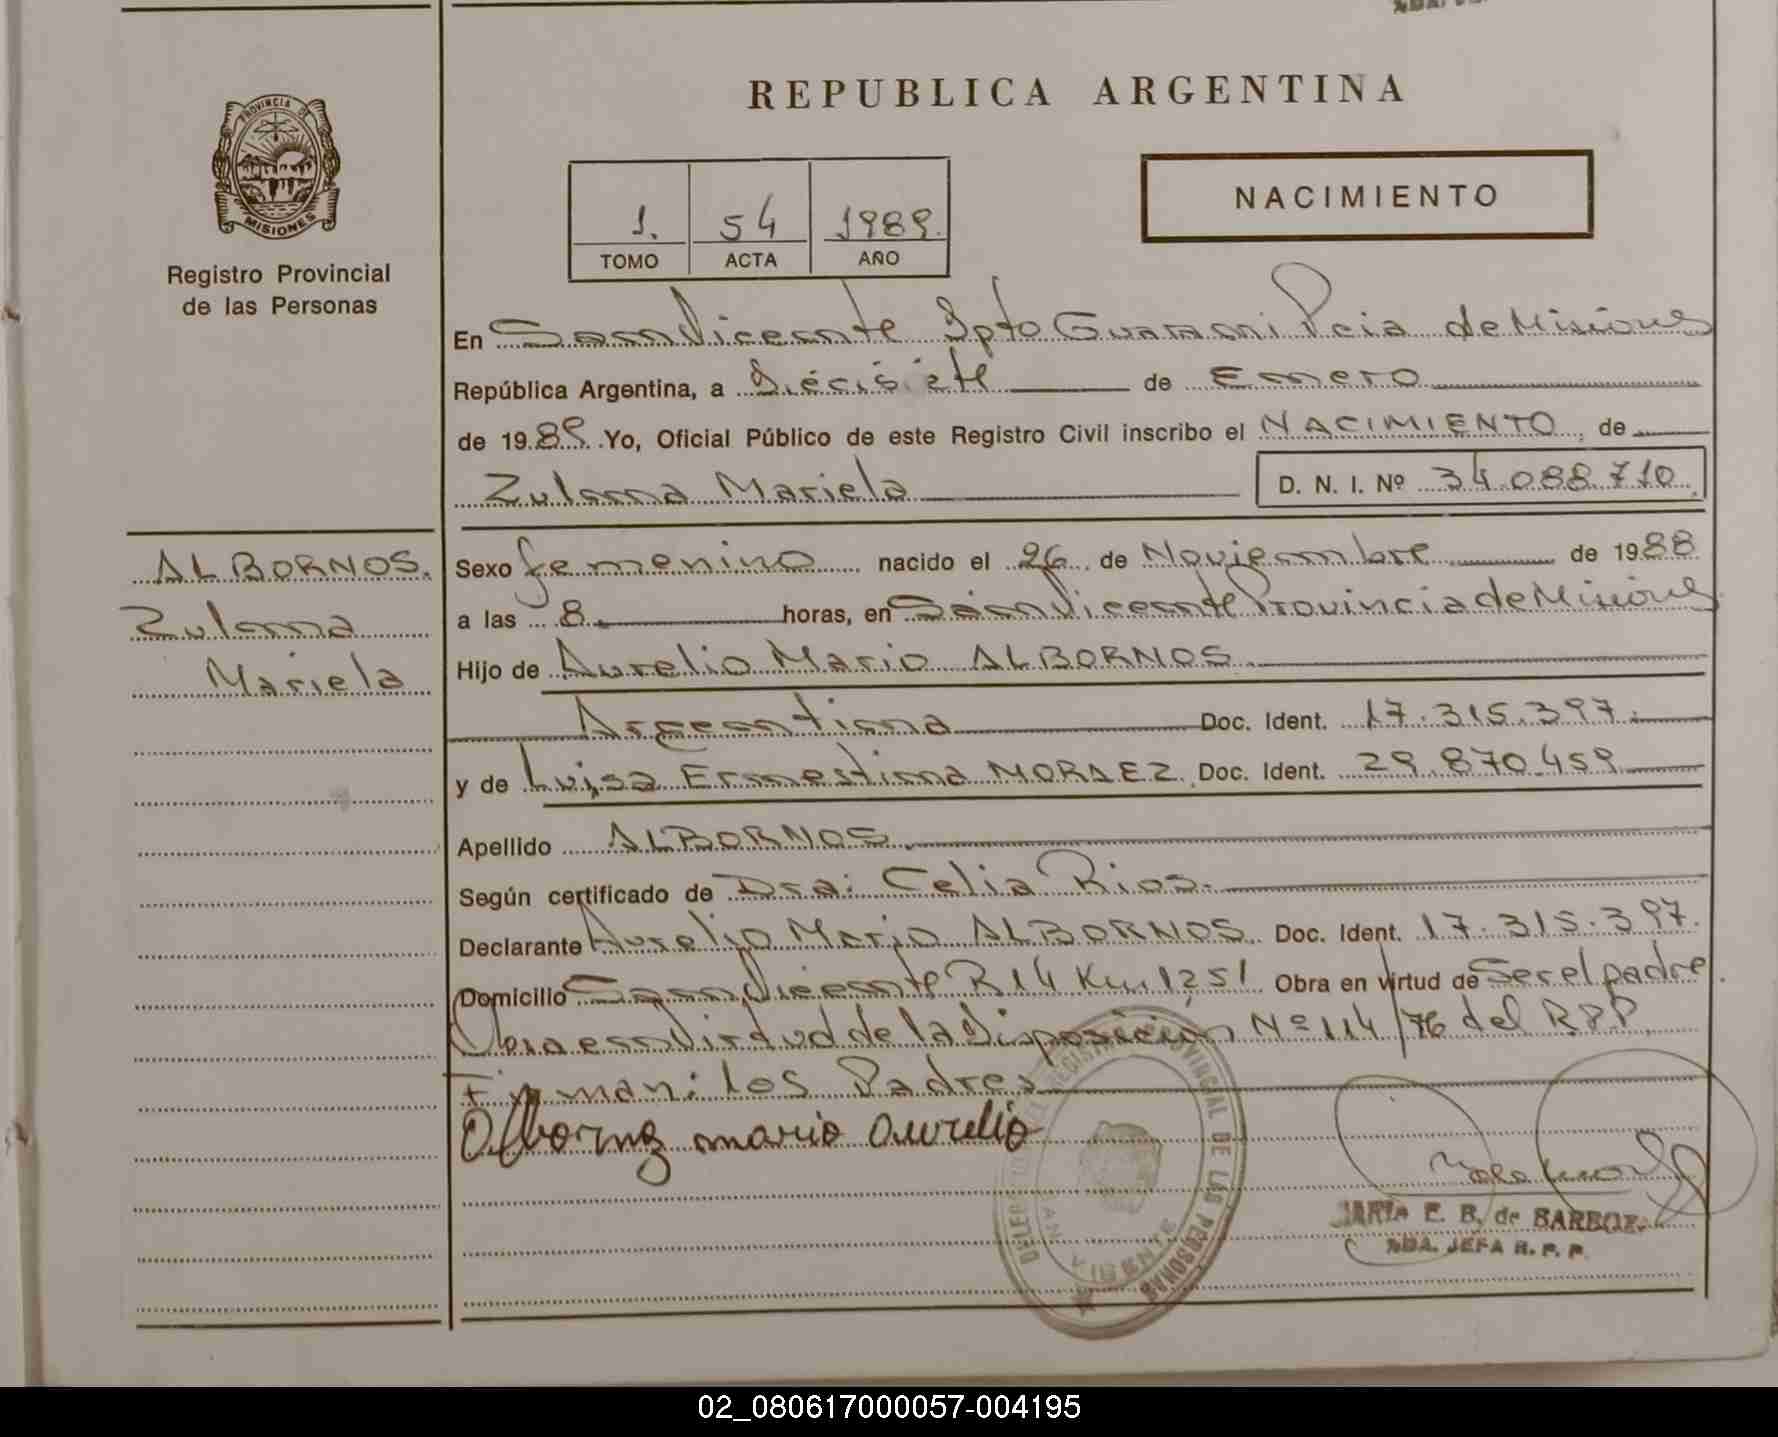 REPUBLICA ARGENTINA
PROVINCIA DE
MISIONES
Registro Provincial
de las Personas
1. 54 1989.
TOMO ACTA AÑO
NACIMIENTO
En San Vicente Dpto Guarani Pcia de Misiones
República Argentina, a Diecisiete de Enero
de 1989. Yo, Oficial Público de este Registro Civil inscribo el NACIMIENTO, de
Zulma Mariela
D. N. I. Nº 34.088.710
ALBORNOS.
Zulma
Mariela
Sexo femenino nacido el 26 de Noviembre de 1988
a las 8. horas, en San Vicente Provincia de Misiones
Hijo de Aurelio Mario ALBORNOS
Argentina Doc. Ident. 17.315.397.
y de Luisa Ernestina Doc. Ident. 29.870.459
Apellido ALBORNOS.
Según certificado de Dra: Celia Rios.
Declarante Aurelio Mario ALBORNOS. Doc. Ident. 17.315.397.
Domicilio San Vicente R14 Km 1251 Obra en virtud de Ser el padre.
Obra en Virtud de la Disposición Nº 114/76 del R.P.P.
Firman: los Padres
Albornoz mario Aurelio
REGISTRO PROVINCIAL DE LAS PERSONAS
SAN VICENTE
MARIA E. B. de
JEFA R. P. P.
02_080617000057-004195